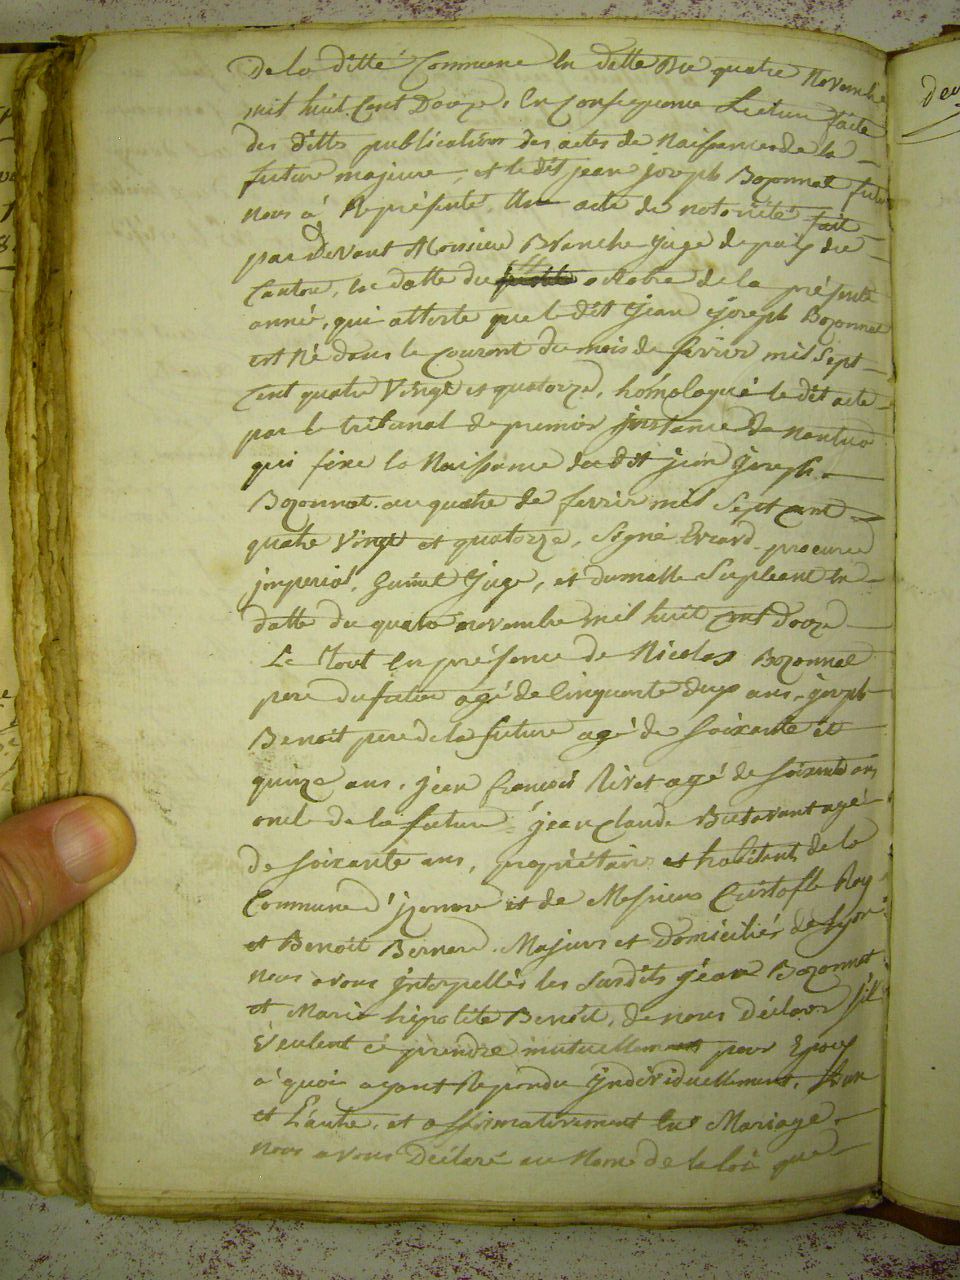 De la ditte Commune En datte Du quatre Novembre
mil huit Cent Douze, En Consequence Lecture faite
des dittes publications des actes de Naissances de la
future majeure, et le dit jean joseph Bozonnat futur
nous à Représenté Un acte de notoriété fait
par Devant Monsieur Branche juge de paix du
Canton, la datte du octobre de la présente
année, qui atteste que le dit jean joseph Bozonnat
est Né dans le Courent du mois de fevrier mil Sept
Cent quatre Vingt et quatorze, homologué le dit acte
par le tribunal de premier instance de Nantua
qui fixe la Naissance du dit jean joseph
Bozonnat au quatre de fevrier mil Sept cent
quatre Vingt et quatorze, Signé Evrard procureur
jmperial, Guinet juge, et dumalle Supleant En
datte du quatre novembre mil huit cent Douze
Le Tout En présence de Nicolas Bozonnat
pere du futur agé de Cinquante deux ans, joseph
Benoit pere de la future agé de Soixante et
quinze ans, jean françois Rivet agé de Soixante ans
oncle de la future, jean Claude Butavant agé
de Soixante ans, propriétaires et habitants de la
Commune d'jzernore et de Messieurs Cristofle Roy
et Benoit Bernard, Majeurs et Domiciliés de Lyon
nous avons jnterpellés les Susdits jean Bozonnat
et Marie hipolite Benoit, de nous Déclarer S'il
Veulent ce prendre mutuellement pour Epoux
à quoi ayant Repondu jndividuellement, L'un
et L'autre, et affirmativement Mariage,
nous avons Déclaré au Nom de la loi que